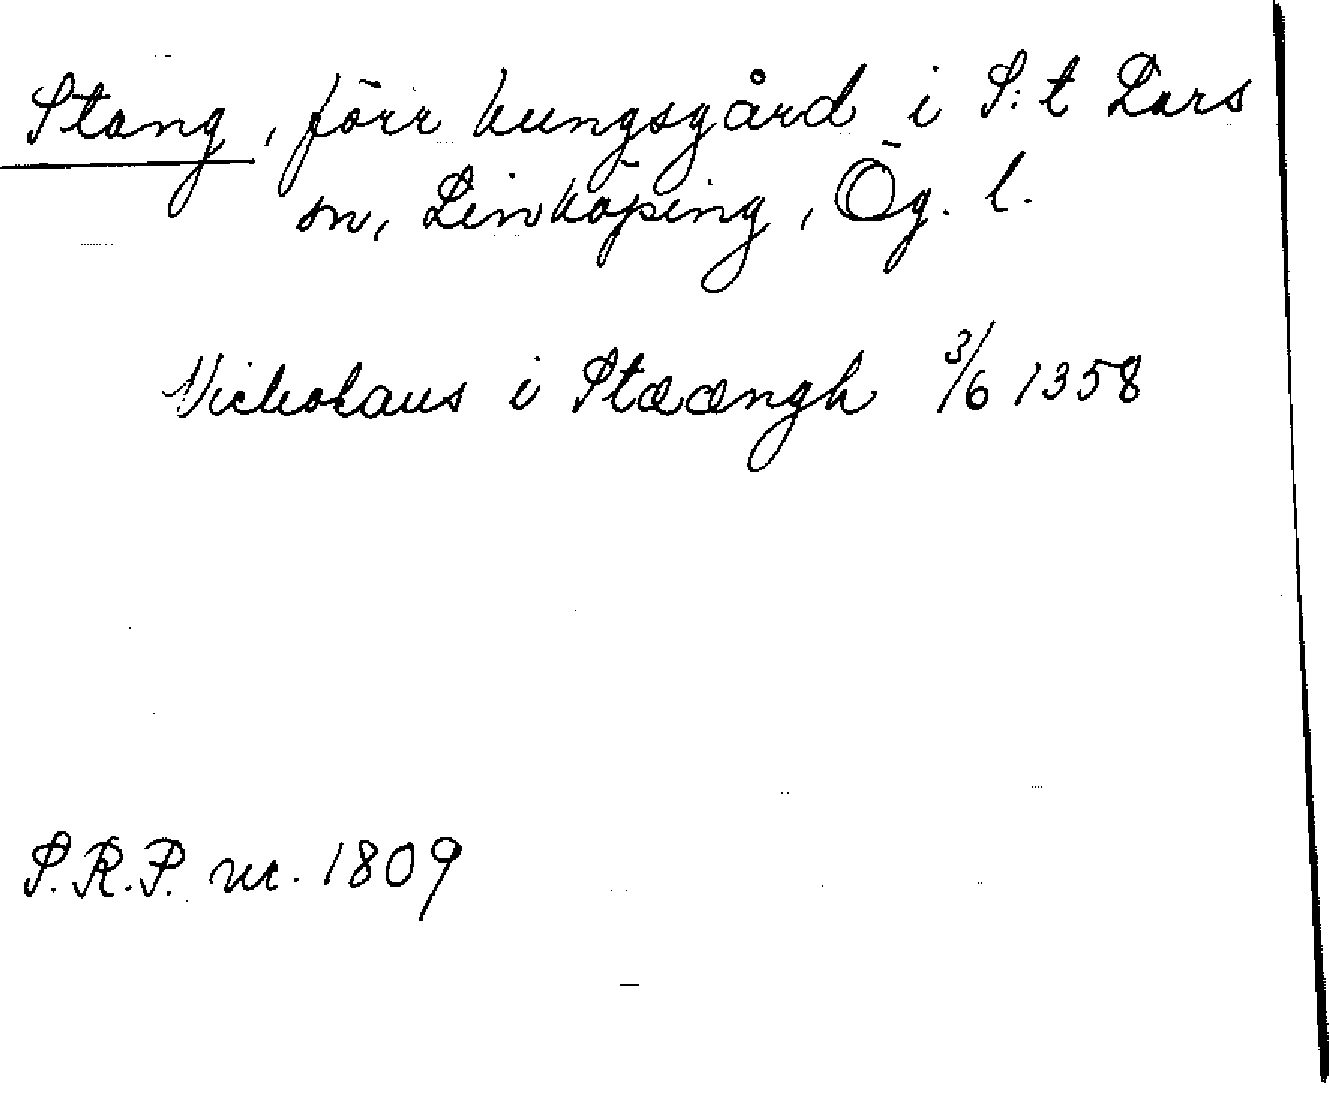 Stang, förr kungsgård i S:t Lars
sn, Linköping, Ög. l.
Nichohaus i Stæængh 3/6 1358
S.R.P. nr. 1809